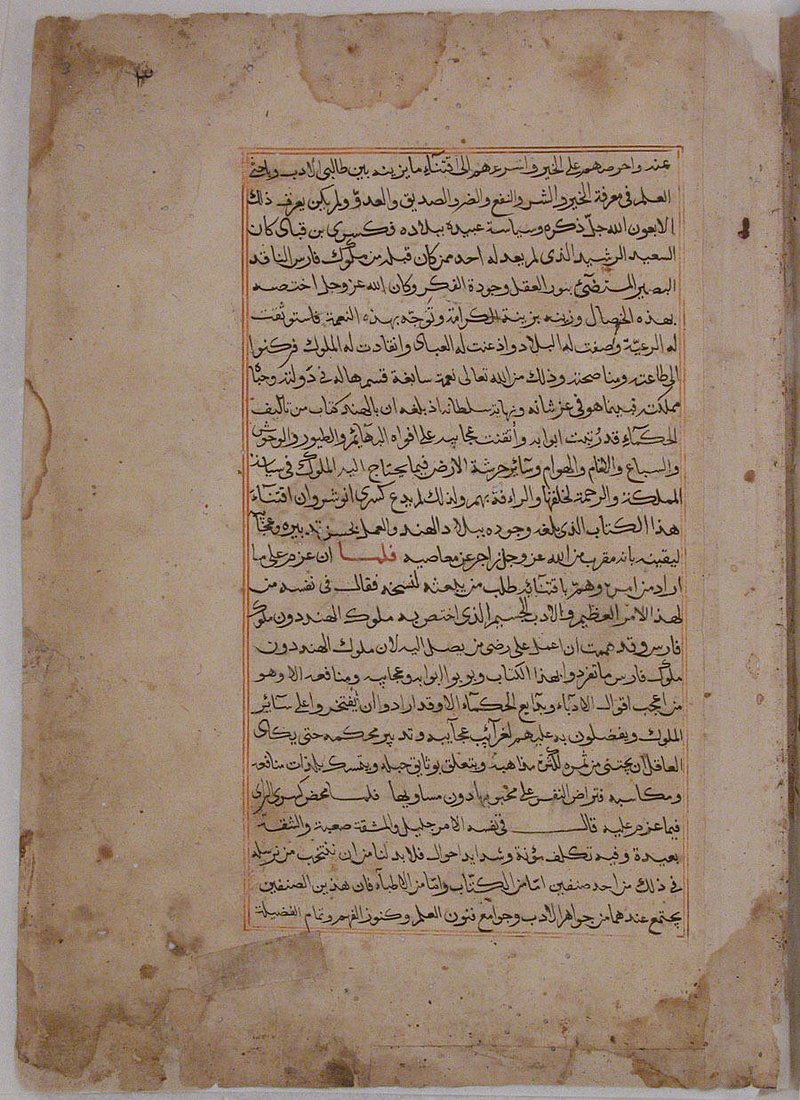 عنده واحرصهم على الخير واسرعهم الى اقتناء ما يزينه بين طالبى الادب وباحثى
العلم فى معرفة الخير والشر والنفع والضر والصديق والعدو ولم يكن يعرف ذلك
الا بعون الله جل ذكره وسياسة عبيده ببلاده فكسرى بن قباى كان
السعيد الرشيد الذى لم يعد له احد ممن كان قبله من ملوك فارس النافد
البصير المستضئ بنور العقل وجودة الفكر وكان الله عز وجل اختصه
بهذه الخصال وزينه بزينة الكرامة وتوجه بهذه النعمة فاستوثقت
له الرعية وصفت له البلاد واذعنت له العباى وانقادت له الملوك فركنوا
الى طاعته ومناصحته وذلك من الله تعالى نعمة سابغة قسمها له فى دولته
مملكته فبينما هو فى عز شانه ونهاية سلطانه اذ بلغه ان بالهند كتاب من تاليف
الحكماء قد رتبت ابوابه واتقنت عجايبه على افواه البهائم والطيور والوحوش
والسباع والهوام وسائر حرشة الارض فيما يحتاج اليه الملوك فى سياسة
المملكة والرحمة لخلقها والرافة بهم ولذلك لم يدع كسرى انوشروان اقتناء
هذا الكتاب الذى بلغه وجوده ببلاد الهند والعمل بحسن تدبيره وعجايبه
ليقينه بانه مقرب من الله عز وجل زاجر عن معاصيه فلما ان عزم على ما
اراد من امره وهم باقتنائه طلب من يبعثه لنسخه فقال فى نفسه من
لهذا الامر العظيم والادب الجسيم الذى اختص به ملوك الهند دون ملوك
فارس وقد هممت ان اعمل على رضى من يصل اليه لان ملوك الهند دون
ملوك فارس ما تفردوا بهذا الكتاب وبوبوا ابوابه وعجايبه ومنافعه الا وهو
من اعجب اقوال الادباء وبدايع الحكماء الا وقد ارادوا ان يفتخروا على سائر
الملوك ويفضلون به عليهم لغرائب عجايبه وتدبير محكمه حتى يكاى
العاقل ان يجتنى من ثمره لكثر مذاهبه ويتعلق بوثايق حبله ويتمسك بلذات منافعه
ومكاسبه فتراض النفس على محبوبها دون مساويها فلما محض كسرى الراى
فيما عزم عليه قال فى نفسه الامر جليل والمشقة صعبة والشقة
بعيدة وفيه تكلف مؤنة وشدايد احوال فلا بد لنا من ان ننتخب من نرسله
فى ذلك من احد صنفين اما من الكتاب واما من الاطباء فان هذين الصنفين
يجتمع عندهما من جواهر الادب وجوامع فنون العلم وكنوز الفهم وتمام الفضيلة